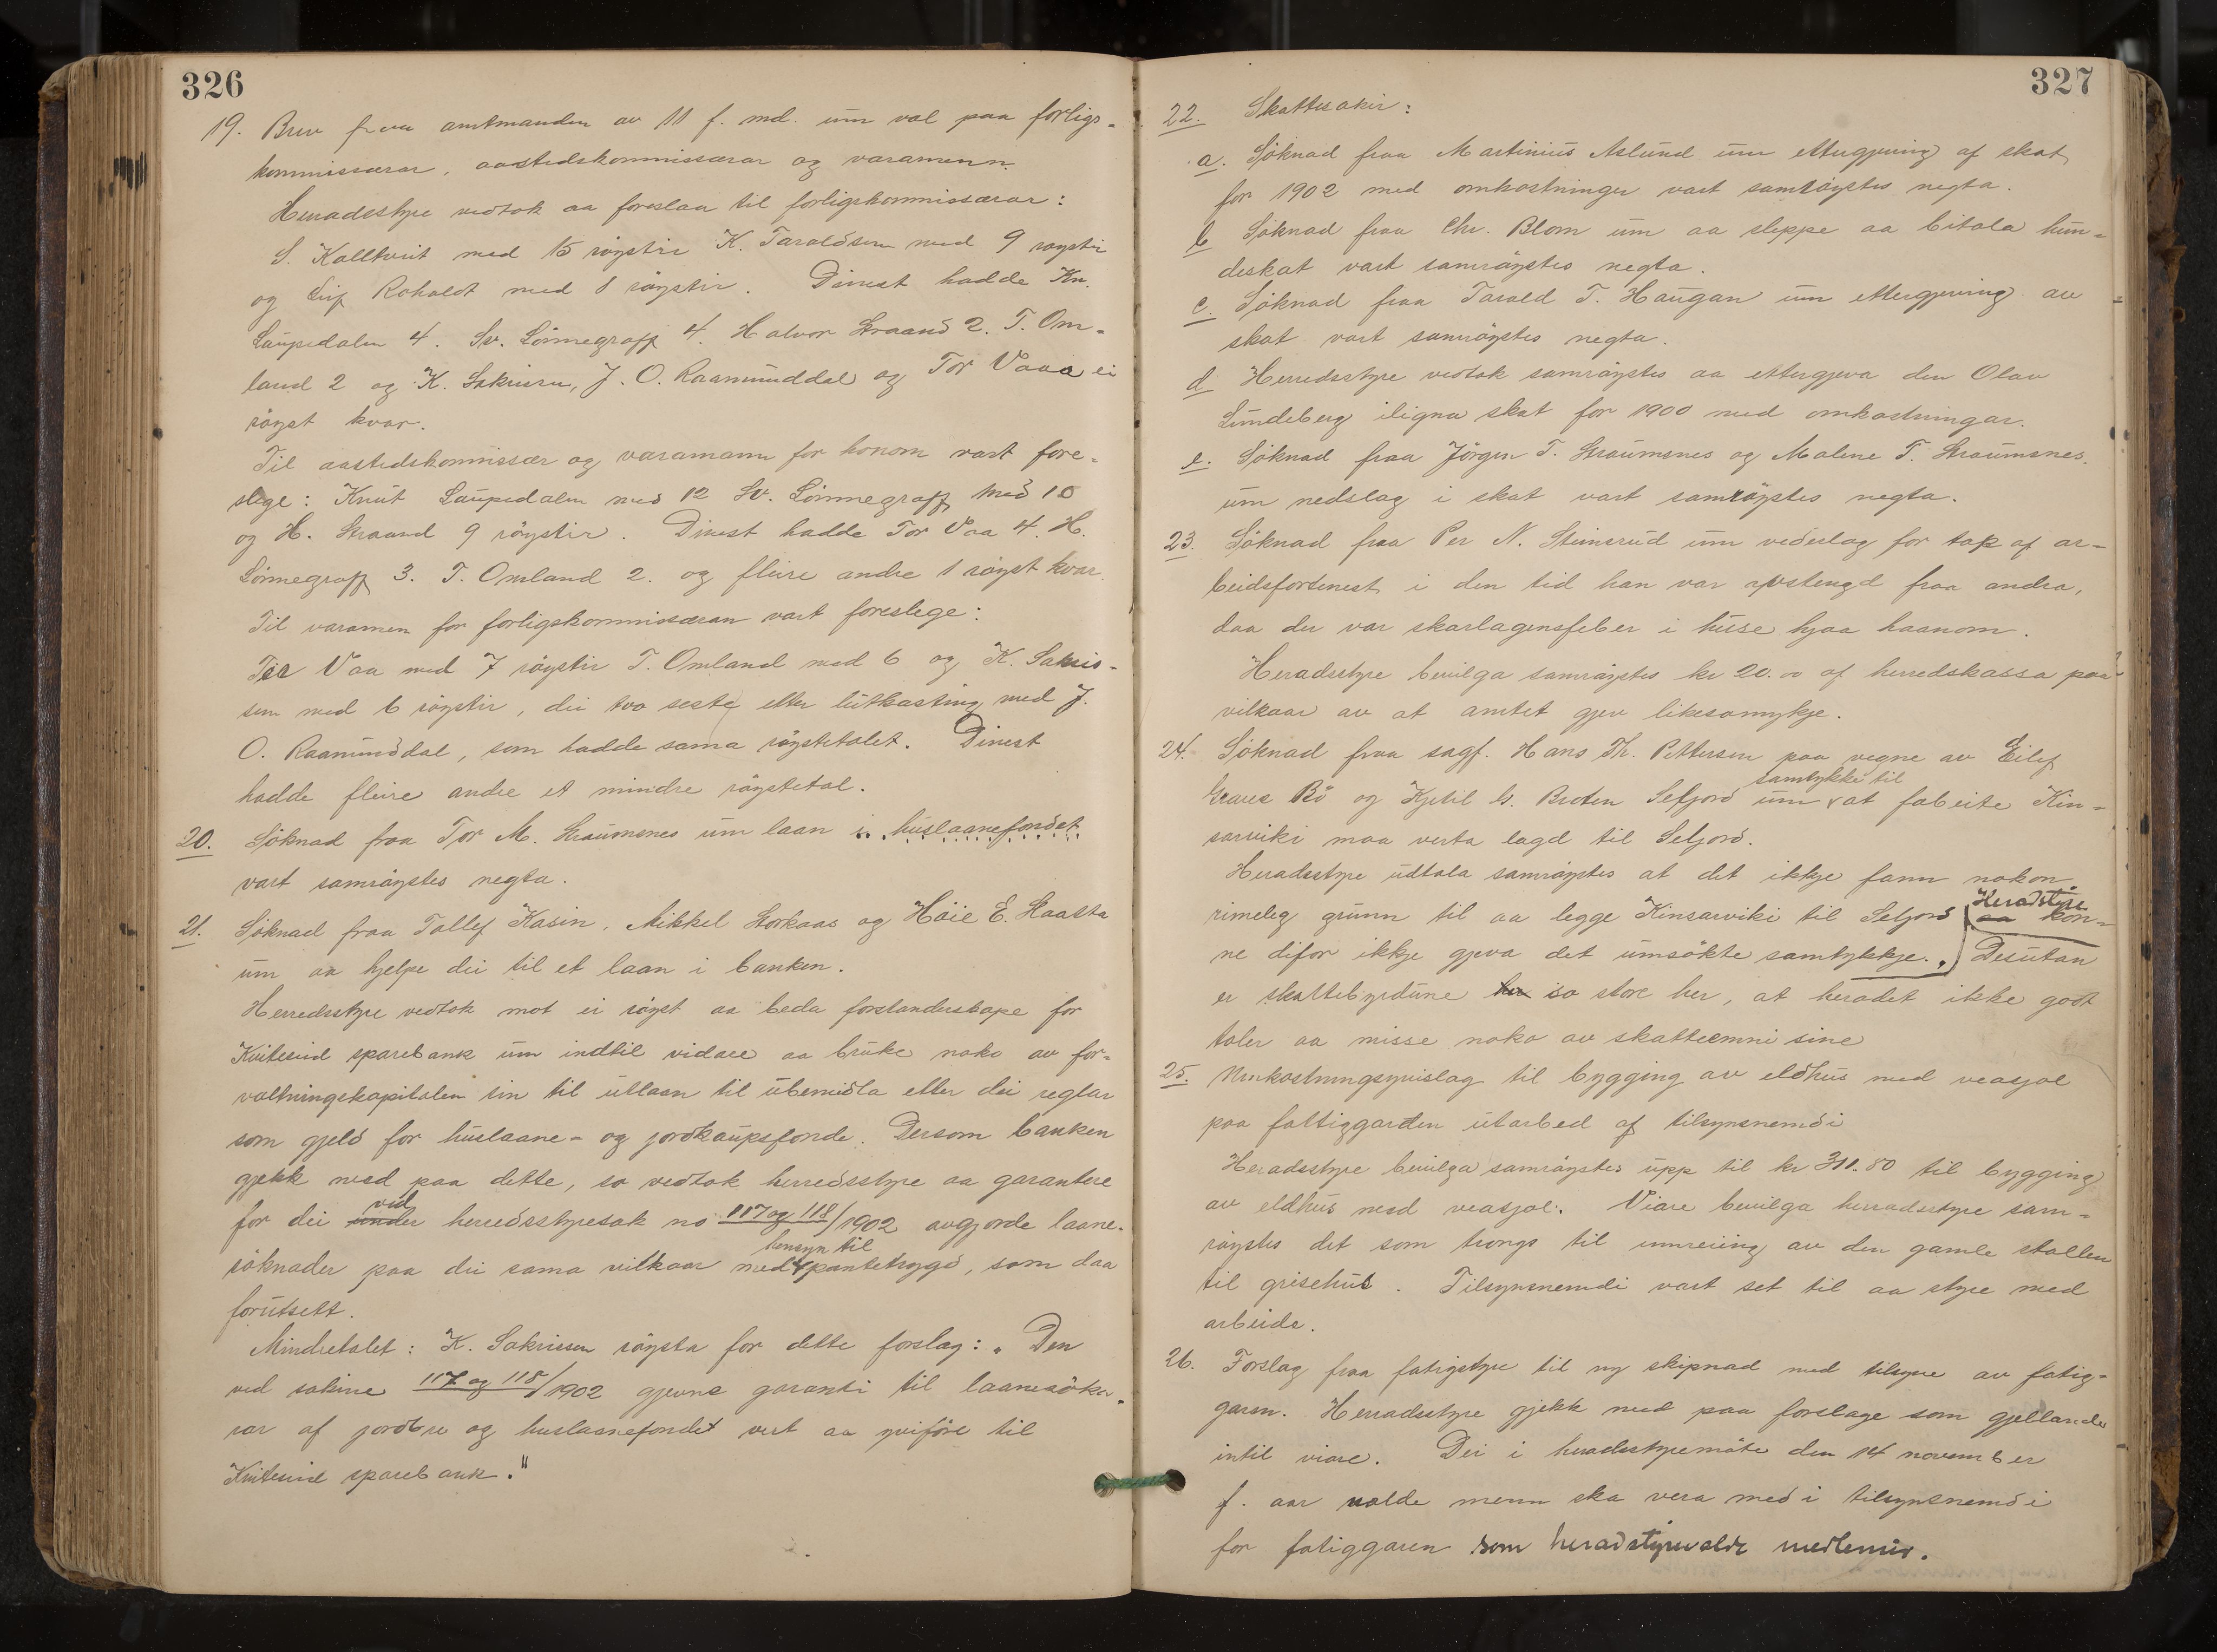 326
19. Brev fraa amtmanden av 11 f. md. um val paa forligs-
kommissærar, aastedskommissærar og varamenn.
Herradsstyre vedtok aa foreslaa til forligskommissærar:
S. Kalltveit med 15 röystir K. Taraldsen med 9 röystir
og Leif Roholdt med 8 röystir. Dinest hadde Kn.
Laupedalen 4. Sv. Lönnegraff 4. Halvor Straand 2. T. Om-
land 2 og K. Sakrissen, J. O. Raamunddal og Tor Vaaa ei
röyst kvar.
Til aastedskommissær og varamann for honom vart fore-
slege: Knut Laupedalen med 12 Sv. Lönnegraff med 10
og H. Straand 9 röystir. Dinest hadde Tor Vaa 4. H.
Lönnegraff 3. T. Omland 2. og fleire andre 1 röyst kvar.
Til varamen for forligskommissæran vart foreslege:
Tor Vaa med 7 röystir T. Omland med 6 og K. Sakris-
sen med 6 röystir, dei tvo seste etter lutkasting med J.
O. Raamunddal, som hadde sama röystetalet. Dinest
hadde fleire andre et mindre röystetal.
20. Söknad fraa Tor M. Straumsnes um laan i huslaanefondet
vart samröystes negta.
21. Söknad fraa Tallef Kasin, Mikkel Storkaas og Höie E. Haatta
um aa hjelpe dei til et laan i banken.
Herredsstyre vedtok mot ei röyst aa beda forstanderskape for
Kviteseid sparebank um indtil vidare aa bruke noko av for-
valtningskapitalen sin til utlaan til ubemidla etter dei reglar
som gjeld for huslaane- og jordkaupsfonde. Dersom banken
gjekk med paa dette, so vedtok herredsstyre aa garantere
vid
for dei under herredsstyresak no 117 og 118/1902 avgjorde laane-
hensyn til
söknader paa dei sama vilkaar med pantetrygd, som daa
forutsett.
Mindretalet: K. Sakrissen röysta for dette forslag: „Den
ved sakine 117 og 118/1902 gjevne garanti til laanesöka-
rar af jordbru og huslaanefondet vert aa yviföre til
Kviteseid sparebank."
327
22. Skattesakir:
a. Söknad fraa Martinius Aslund um ettergjeving af skat
for 1902 med omkostninger vart samröystes negta.
b Söknad fraa Chr. Blom um aa sleppe aa bitala hun-
deskat vart samröystes negta.
c. Söknad fraa Tarald T. Haugan um ettergjeving av
skat vart samröystes negta.
d Herredsstyre vedtok samröystes aa ettergjeva den Olav
Lundeberg iligna skat for 1900 med omkostningar.
e. Söknad fraa Jörgen T. Straumsnes og Malene T. Straumsnes
um nedslag i skat vart samröystes negta.
23. Söknad fraa Per N. Steinsrud um vederlag for tap af ar-
beidsfortenest i den tid han var avstengd fraa andra,
daa der var skarlagensfeber i huse hjaa haanom.
Heradsstyre bevilga samröystes kr 20.00 af herredskassa paa
vilkaar av at amtet gjev likesomykje.
24. Söknad fraa sagf. Hans Th. Pettersen paa vegne av Eilef
samtykke til
Graver Bö og Kjetil G. Broten Seljord um at fabeite Kin-
sarviki maa verta lagd til Seljord.
Heradsstyre udtala samröystes at det ikkje fann nokon
Heradstyre
rimeleg grunn til aa legge Kinsarviki til Seljord aa kon-
ne difor ikkje gjeva det umsökte samtykkje. Desutan
er skattebyrdune her so store her, at heradet ikke godt
taler aa misse noko av skatteemni sine
25. Umkostningsyvislag til bygging av eldhus med veaskjol
paa fattiggarden utarbeid af tilsynsnemdi
Heradsstyre bevilga samröystes upp til kr 311.80 til bygging
av eldhus med veaskjol. Viare bevilga herradsstyre sam-
röystes det som trongs til innreiing av den gamle stallen
til grisehus. Tilsynsnemdi vart set til aa styre med
arbeide.
26. Forslag fraa fatigstyre til ny skipnad med tilsyne av fatig-
garen. Herradsstyre gjekk med paa forslage som gjellande
intil viare. Dei i heradsstyremöte den 14 november
f. aar valde menn ska vera med i tilsynsnemdi
for fatiggaren som heradstyrevalde medlemir.